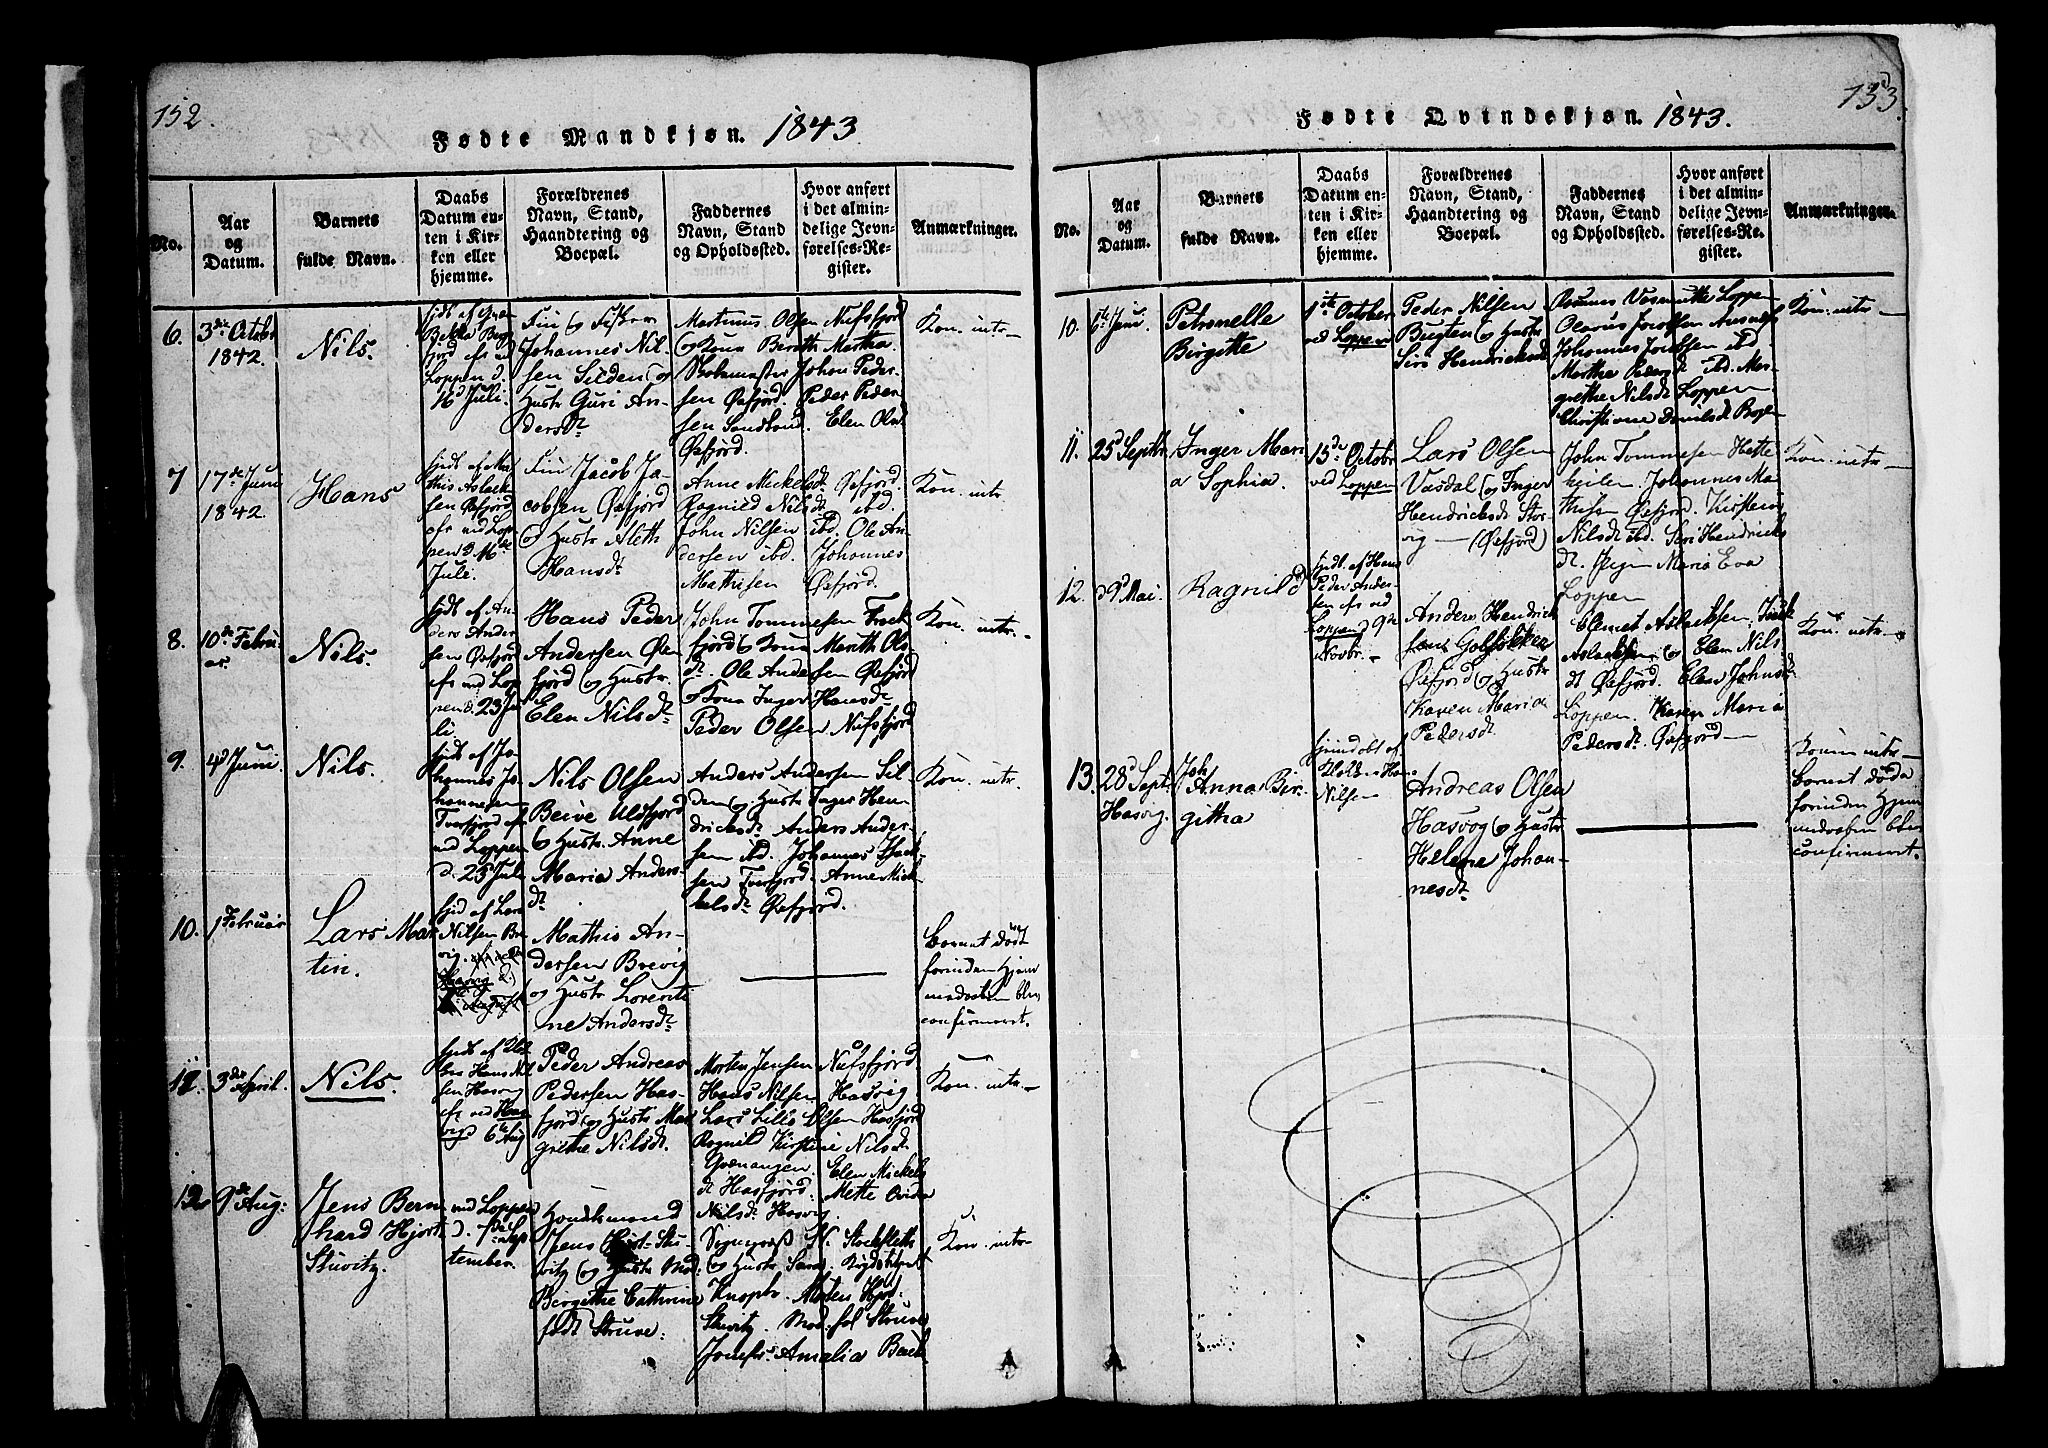 152.
Fødte Mandkjøn. 1843
No.
Aar
og
Datum.
Barnets
fulde Navn.
Daabs
Datum en-
ten i Kir-
ken eller
hjemme.
Forældrenes
Navn, Stand,
Haandtering og
Boepæl.
Faddernes
Navn, Stand
og Opholdssted.
Hvor anført
i det almin-
delige Jevn-
førelses-Re-
gister.
Anmærkninger.
6.
3de Octobr
1842.
Nils.
hjdt af
Loppen d.
16 Juli.
Fin og Fisker
Johannes Nil-
sen Silden og
Hustr Guri An-
dersdt
Martinus Olsen Nufsfjord
og Kona Berith Martha
John Peder-
sen Øxfjord. Peder Peder-
sen Sandland. Elen Olsd
Øxfjord.
Kon. intr-
7
17de Juni
1842.
Hans
hjdt af Ma-
this Aslack-
sen Øxfjord
cfr ved Lop-
pen d
Juli.
Fin Jacob Ja-
cobsen Øxfjord
og Hustr Aleth
Hansdt
Anne Mickelsdt Øxfjord.
Ragnild Nilsdt ibd.
John Nilsen ibd. Ole An-
dersen ibd. Johannes
Mathisen Øxfjord.
Kon. intr.
8.
10de Febru-
ar.
Nils.
hjdt af An-
ders Ander-
sen Øxfjord
cfr ved Lop-
pen d. 23 Ju-
li.
Hans Peder
Andersen Øx-
fjord og Hustr.
Elen Nilsdt
John Tommesen Frack
fjord og Kona Marith Ols-
dt. Ole Andersen Øxfjord
og Kona Inger Hansdt
Peder Olsen Nufsfjord
Kon. intr.
9.
4d Juni.
Nils.
hjdt af Jo-
hannes Jo-
hannesen
Tverfjord cfr
ved Loppen
d. 23 Juli
Nils Olsen
Beive Ulsfjord
og Hustr. Anne
Maria Anders-
dt
Anders Andersen Sil-
den og Hustr Inger Hen-
dricksdt Anders Ander-
sen ibd. Johannes
sen Tverfjord Anne Mick-
kelsdt Øxfjord.
Kon. intr.
10.
1 Februar
Lars Mar
tin.
hjd af Lars
Nilsen Bre-
vig.
Mathis An-
dersen Brevig
og Hustr Lorenti
ne Andersdt
Barnet døde
forinden Hjem
medaaben blev
confirmeret.
12
3de April.
Nils.
hjdt af
Hans Nil-
sen Hasvig
cfr ved Has-
vig d 6te Aug
Peder Andreas
Pedersen Has-
fjord og Hustr Mar
grethe Nilsdt.
Morten Jensen Nufsfjord.
Hans Nilsen Hasvig
Lars Lille Olsen Hasfjord
Ragnild Kirstine Nilsdt
Qvænangen. Elen Mickels
dt Hasfjord. Mette Ovida
Nilsdt Hasvig.
Kon. intr.-
12
9de Aug:
Jens Bern
hard Hjort
Stuvitz.
ved Loppen
d. Sep-
tember.
Handelsmand
Jens Hjort Stu-
vitz og Hustr Mad.
Birgitthe Cathrine
født Struve.
Sognepræst N. Stockfleth
og Hustr Sara
Knoph. Morten Hjort
Stuvitz. Mad. Struve
Jomfr. Amalia Back
Kon. intr-
153.
Fødte Qvindekjøn. 1843.
No.
Aar
og
Datum.
Barnets
fulde Navn.
Daabs
Datum en-
ten i Kir-
ken eller
hjemme.
Forældrenes
Navn, Stand,
Haandtering og
Boepæl.
Faddernes
Navn, Stand
og Opholdssted.
Hvor anført
i det almin-
delige Jevn-
førelses-Re-
gister.
Anmærkninger.
10.
6te Juni.
Petronelle
Birgitte
1ste October
ved Loppen
Peder Nilsen
Bugten og Hustr
Siri Hendricksd
Loppen
Olarus Jacobsen
Johannes Jacobsen ibd.
Marthe Pedersdt ibd. Mar-
grethe Nilsdt Loppen
Christiane Danielsdt
Kon. intr-
11.
25d Septbr
Inger Mari
a Sophia.
15de Octobr
ved Loppen
Lars Olsen
Vasdal og Inger
Hendricksdt Stor-
vig - (Øxfjord)
John Tommesen
Johannes Ma-
thisen Øxfjord. Kirsten
Nilsdt ibd. Siri Hendricks
dt. Pigen Maria Eva
Loppen
Kon. intr-
12.
29d Mai.
Ragnild
hjdt. af Hans
Peder Ander-
sen cfr ved
Loppen d 9de
Novbr.
Anders Hendrick
sen
Øxfjord og Hustr
Karen Maria
Pedersdt
Clemet Aslacksen,
Aslacksen og Elen Nils
dt Øxfjord. Elen Johns-
dt
Loppen. Karen Maria
Pedersdt. Øxfjord
Kon. intr-
13.
28d Sept.
Hasvig.
Joh
Anna Bir-
githa
hjemdøbt af
Hans
Nilsen
Andreas Olsen
Hasvog og Hustr
Helene Johan-
nesdt
Konen intr-
Barnet døde
forinden Hjem
medaaben blev
confirmeret.